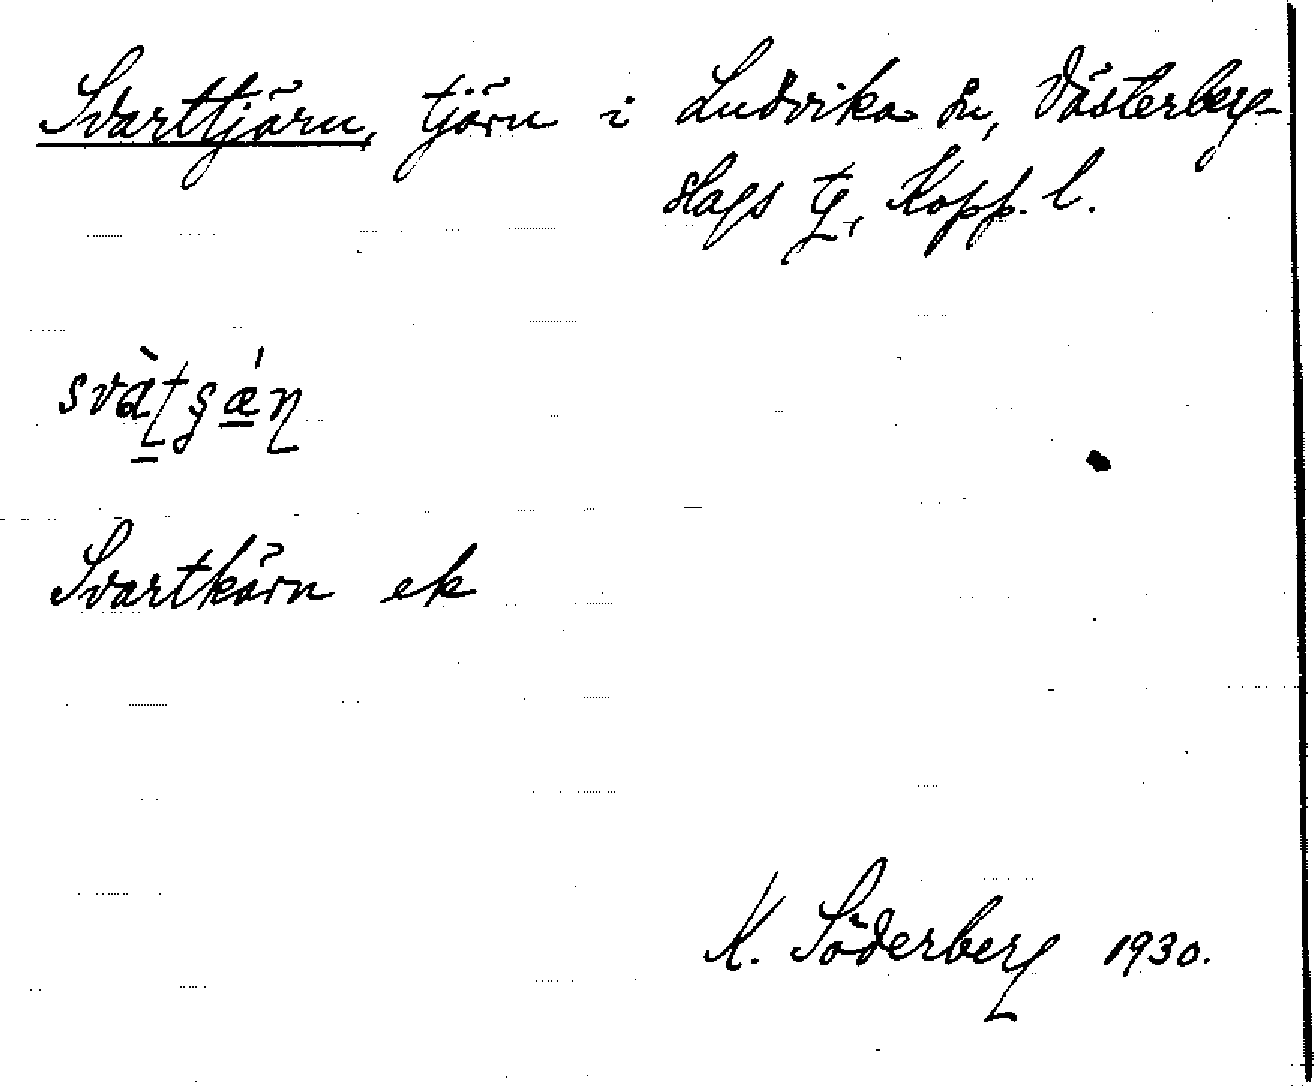 Svarttjärn, tjärn i Ludvika sn, Västerberg-
slags tg, Kopp. l.
svàʈʂǽɳ
Svartkärn ek
K. Söderberg 1930.